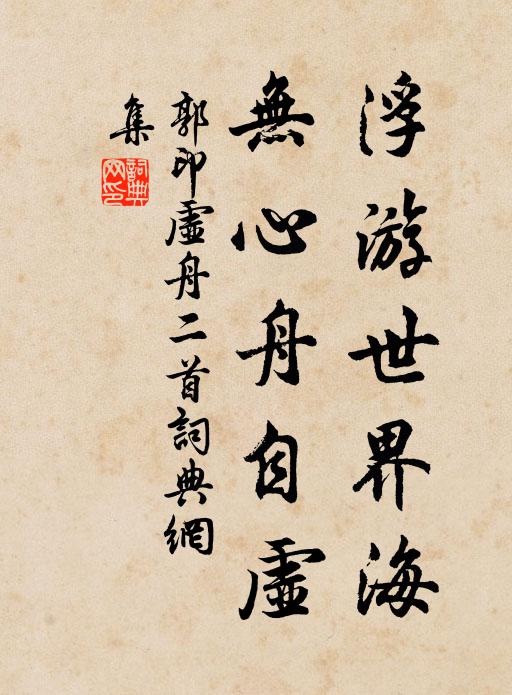 浮游世界海
無心舟自虛
郭印虛舟二首詞典網
集
詞典網印